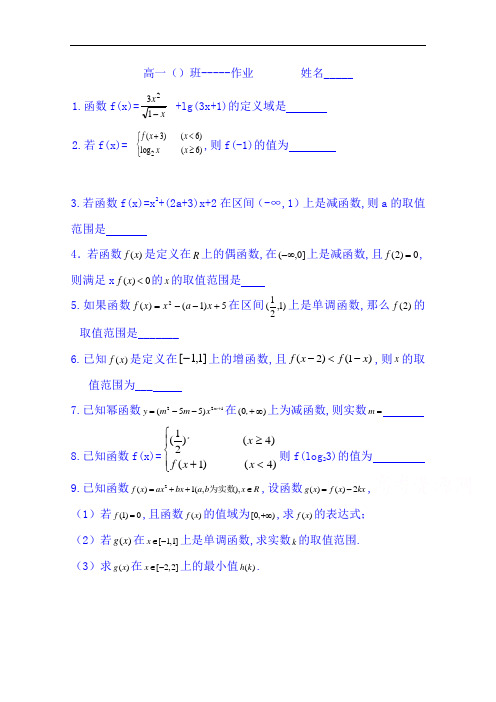 高一（）班-----作业 姓名_____
1.函数f(x)=3x²/√(1−x) +lg(3x+1)的定义域是_______
2.若f(x)= { f(x+3) (x<6) log₂x (x≥6) ,则f(-1)的值为_______
3.若函数f(x)=x²+(2a+3)x+2在区间（-∞,1）上是减函数,则a的取值
范围是______
4．若函数f(x)是定义在R上的偶函数,在(−∞,0]上是减函数,且f(2)=0,
则满足x f(x)<0的x的取值范围是____
5.如果函数f(x)=x²−(a−1)x+5在区间(1/2,1)上是单调函数,那么f(2)的
取值范围是_______
6.已知f(x)是定义在[−1,1]上的增函数,且f(x−2)<f(1−x),则x的取
值范围为___
7.已知幂函数y=(m²−5m−5)x²ᵐ⁺¹在(0,+∞)上为减函数,则实数m=_______
8.已知函数f(x)= { (1/2)ˣ (x≥4) f(x+1) (x<4) 则f(log₂3)的值为_______
9.已知函数f(x)=ax²+bx+1(a,b为实数),x∈R,设函数g(x)=f(x)−2kx,
（1）若f(1)=0,且函数f(x)的值域为[0,+∞),求f(x)的表达式;
（2）若g(x)在x∈[−1,1]上是单调函数,求实数k的取值范围.
（3）求g(x)在x∈[−2,2]上的最小值h(k).